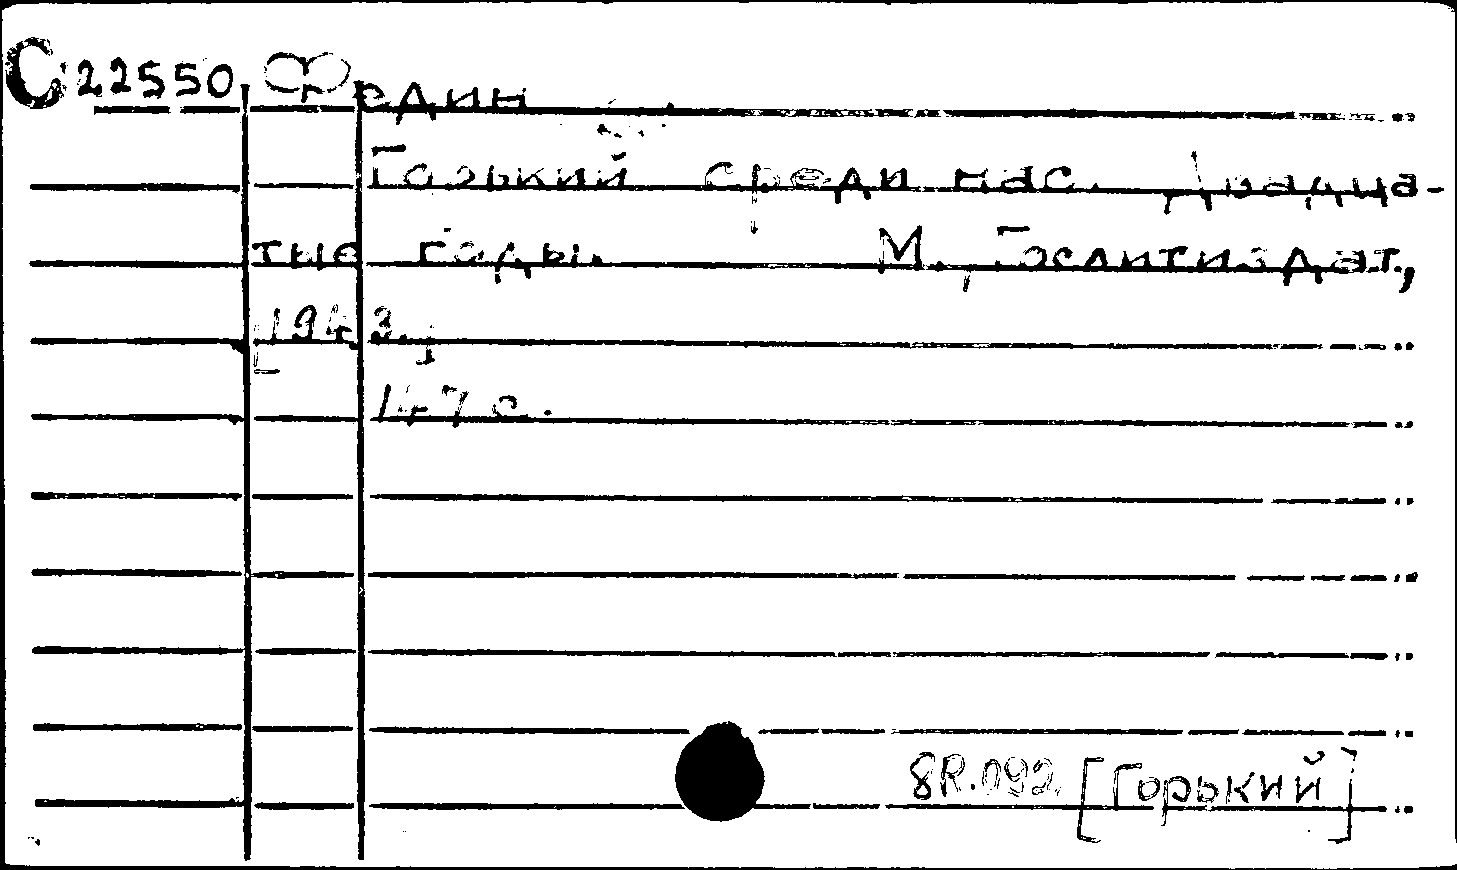 С22550 Федин
Горький среди нас. Двадца-
тые годы. М., Гослитиздат,
[1943.]
147 с.
8R.092. [Горький]